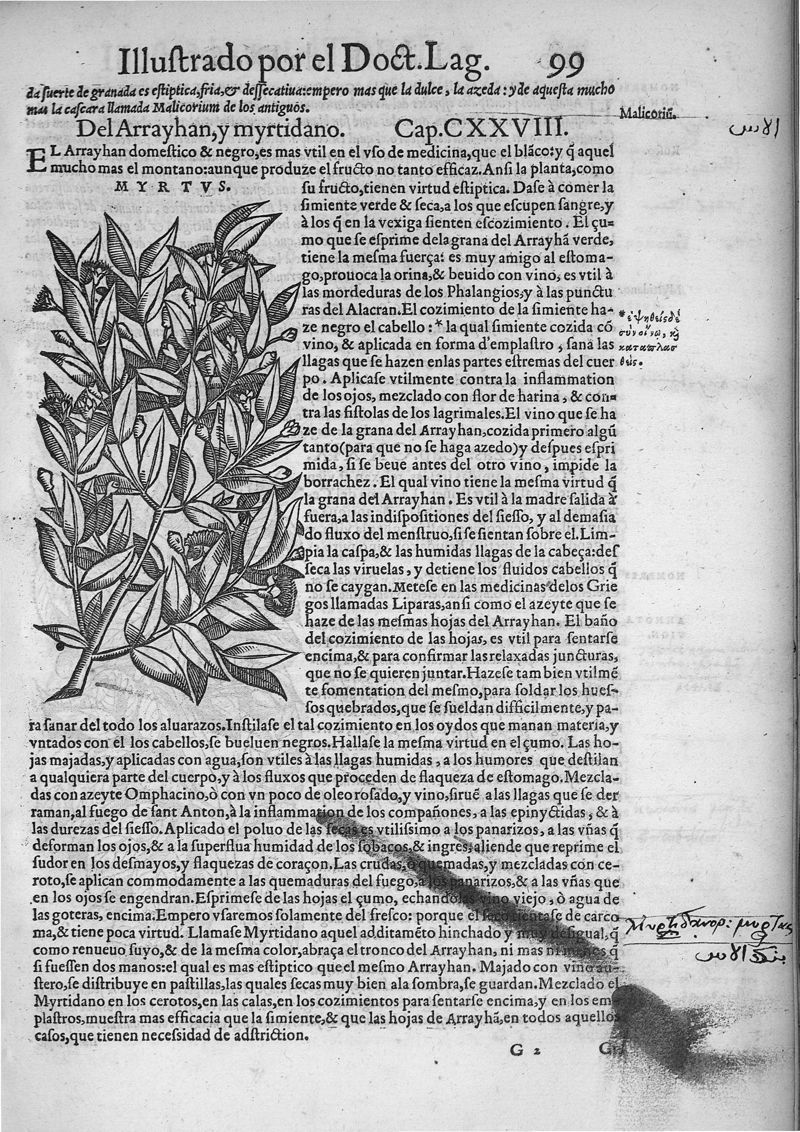 Illustrado por el Doct. Lag. 99
da suerte de granada es estiptica, fria, & dessecatiua: empero mas que la dulce, la azeda: y de aquesta mucho
mas la cascara llamada Malicorium de los antiguos.
Malicoriũ.
Del Arrayhan, y myrtidano. Cap. CXXVIII.
الاس
EL Arrayhan domestico & negro, es mas vtil en el vso de medicina, que el blãco: y q̃ aquel
mucho mas el montano: aunque produze el fructo no tanto efficaz. Ansi la planta, como
MYRTVS.
su fructo, tienen virtud estiptica. Dase à comer la
simiente verde & seca, a los que escupen sangre, y
à los q̃ en la vexiga sienten escozimiento. El çu-
mo que se esprime dela grana del Arrayhã verde,
tiene la mesma fuerça: es muy amigo al estoma-
go, prouoca la orina, & beuido con vino, es vtil à
las mordeduras de los Phalangios, y à las punctu
ras del Alacran. El cozimiento de la simiente ha-
ze negro el cabello: * la qual simiente cozida cõ
vino, & aplicada en forma d'emplastro, sana las
llagas que se hazen enlas partes estremas del cuer
po. Aplicase vtilmente contra la inflammation
de los ojos, mezclado con flor de harina, & con-
tra las fistolas de los lagrimales. El vino que se ha
ze de la grana del Arrayhan, cozida primero algũ
tanto (para que no se haga azedo) y despues espri
mida, si se beue antes del otro vino, impide la
borrachez. El qual vino tiene la mesma virtud q̃
la grana del Arrayhan. Es vtil à la madre salida à
fuera, a las indispositiones del siesso, y al demasia
do fluxo del menstruo, si se sientan sobre el. Lim-
pia la caspa, & las humidas llagas de la cabeça: des
seca las viruelas, y detiene los fluidos cabellos q̃
no se caygan. Metese en las medicinas delos Grie
gos llamadas Liparas, ansi como el azeyte que se
haze de las mesmas hojas del Arrayhan. El baño
del cozimiento de las hojas, es vtil para sentarse
encima, & para confirmar las relaxadas juncturas,
que no se quieren juntar. Hazese tam bien vtilmẽ
te fomentation del mesmo, para soldar los hues-
sos quebrados, que se sueldan difficilmente, y pa-
ra sanar del todo los aluarazos. Instilase el tal cozimiento en los oydos que manan materia, y
vntados con el los cabellos, se bueluen negros. Hallase la mesma virtud en el çumo. Las ho-
jas majadas, y aplicadas con agua, son vtiles à las llagas humidas, a los humores que destilan
a qualquiera parte del cuerpo, y à los fluxos que proceden de flaqueza de estomago. Mezcla-
das con azeyte Omphacino, ò con vn poco de oleo rosado, y vino, siruẽ a las llagas que se der
raman, al fuego de sant Anton, à la inflammation de los compañones, a las epinyctidas, & à
las durezas del siesso. Aplicado el poluo de las secas es vtilissimo a los panarizos, a las vñas q̃
deforman los ojos, & a la superflua humidad de los sobacos, & ingres: aliende que reprime el
sudor en los desmayos, y flaquezas de coraçon. Las crudas, ò quemadas, y mezcladas con ce-
roto, se aplican commodamente a las quemaduras del fuego, a los panarizos, & a las vñas que
en los ojos se engendran. Esprimese de las hojas el çumo, echandolas vino viejo, ò agua de
las goteras, encima. Empero vsaremos solamente del fresco: porque el seco sientase de carco
ma, & tiene poca virtud. Llamase Myrtidano aquel additamẽto hinchado y muy desigual, q̃
como renueuo suyo, & de la mesma color, abraça el tronco del Arrayhan, ni mas ni menos q̃
si fuessen dos manos: el qual es mas estiptico que el mesmo Arrayhan. Majado con vino au-
stero, se distribuye en pastillas, las quales secas muy bien ala sombra, se guardan. Mezclado el
Myrtidano en los cerotos, en las calas, en los cozimientos para sentarse encima, y en los em
plastros, muestra mas efficacia que la simiente, & que las hojas de Arrayhã, en todos aquellos
casos, que tienen necessidad de adstriction.
G 2